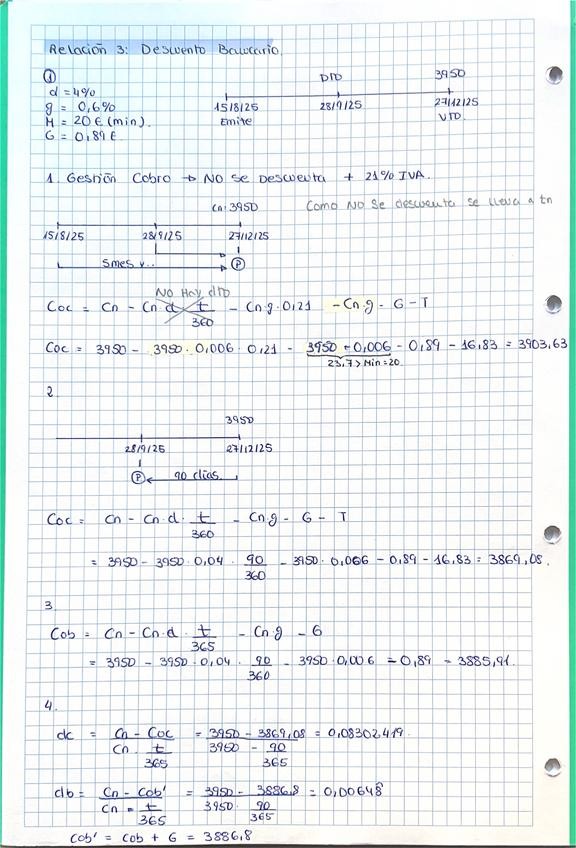 Relación 3: Descuento Bancario.
①
d = 4%
g = 0,6%
M = 20 € (min).
G = 0,89 €
DTO 3950
15/8/25 28/9/25 27/12/25
Emite VTO.
1. Gestión Cobro → NO se Descuenta + 21% IVA.
Cn: 3950 Como NO se descuenta se lleva a tn
15/8/25 28/9/25 27/12/25
5mes v.. P
NO Hay dto
Coc = Cn - Cn d t/360 - Cn g · 0,21 - Cn · g - G - T
Coc = 3950 - 3950 · 0,006 · 0,21 - 3950 · 0,006 - 0,89 - 16,83 = 3903,63
23,7 > Min = 20
2.
3950
28/9/25 27/12/25
P 90 días.
Coc = Cn - Cn · d · t/360 - Cn g - G - T
= 3950 - 3950 · 0,04 · 90/360 - 3950 · 0,006 - 0,89 - 16,83 = 3869,08.
3.
Cob = Cn - Cn · d · t/365 - Cn g - G
= 3950 - 3950 · 0,04 · 90/360 - 3950 · 0,006 - 0,89 = 3885,91.
4.
dc = Cn - Coc / Cn · t/365 = 3950 - 3869,08 / 3950 - 90/365 = 0,08302419.
db = Cn - Cob' / Cn · t/365 = 3950 - 3886,8 / 3950 · 90/365 = 0,00648
Cob' = Cob + G = 3886,8